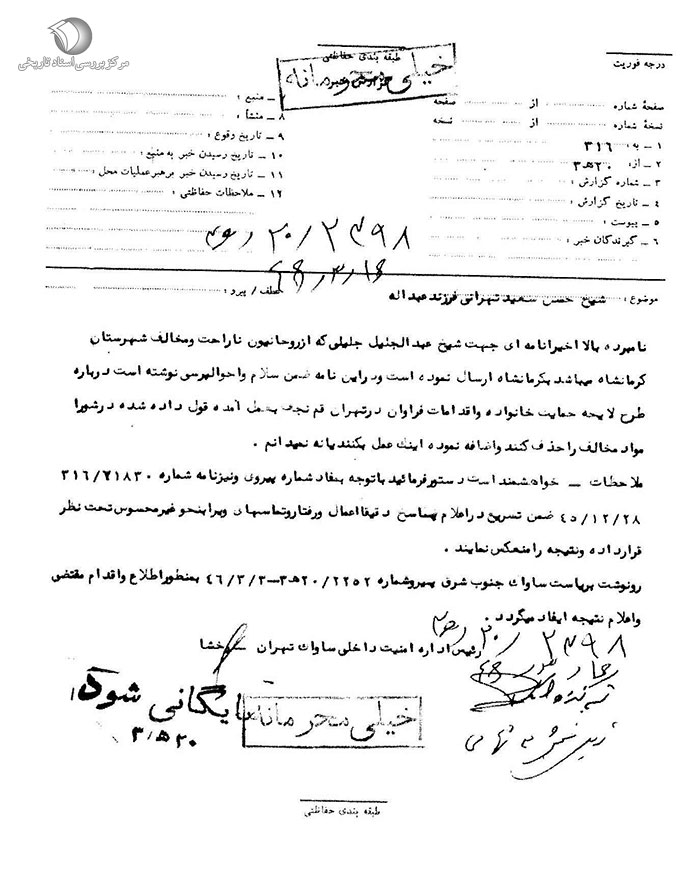 مرکز بررسی اسناد تاریخی
طبقه بندی حفاظتی
خیلی محرمانه
درجه فوریت
صفحهٔ شماره از صفحه
نسخهٔ شماره از نسخه
۱ – به : ۳۱۶
۲ – از : ۲۰ﻫ۳
۳ – شماره گزارش :
۴ – تاریخ گزارش :
۵ – پیوست :
۶ – گیرندگان خبر :
۷ – منبع :
۸ – منشأ :
۹ – تاریخ وقوع :
۱۰ – تاریخ رسیدن خبر به منبع :
۱۱ – تاریخ رسیدن خبر برهبر عملیات محل :
۱۲ – ملاحظات حفاظتی :
۲۰/۲۴۹۸
موضوع : شیخ حسن سعید تهرانی فرزند عبداله
عطف / پیرو :
نامبرده بالا اخیرا نامه ای جهت شیخ عبدالجلیل جلیلی که از روحانیون ناراحت ومخالف شهرستان
کرمانشاه میباشد بکرمانشاه ارسال نموده است ودراین نامه ضمن سلام واحوالپرسی نوشته است درباره
طرح لایحه حمایت خانواده واقدامات فراوان درتهران قم نجف بعمل آمده قول داده شده درشورا
مواد مخالف را حذف کنند واضافه نموده اینک عمل بکنند یانه نمیدانم .
ملاحظات – خواهشمند است دستورفرمائید باتوجه بمفاد شماره پیروی ونیزنامه شماره ۳۱۶/۷۱۸۳۰
۴۵/۱۲/۲۸ ضمن تسریع دراعلام پاسخ دقیقا اعمال ورفتاروتماسهای ویرا بنحو غیرمحسوس تحت نظر
قرارداده ونتیجه را منعکس نمایند .
رونوشت بریاست ساواک جنوب شرق پیروشماره ۲۰/۲۲۵۲ﻫ۳–۴۶/۳/۳ بمنظوراطلاع واقدام مقتضی
واعلام نتیجه ایفاد میگردد .
رئیس اداره امنیت داخلی ساواک تهران
۲۰/۲۴۹۸
بایگانی شود
۲۰ﻫ۳
خیلی محرمانه
طبقه بندی حفاظتی